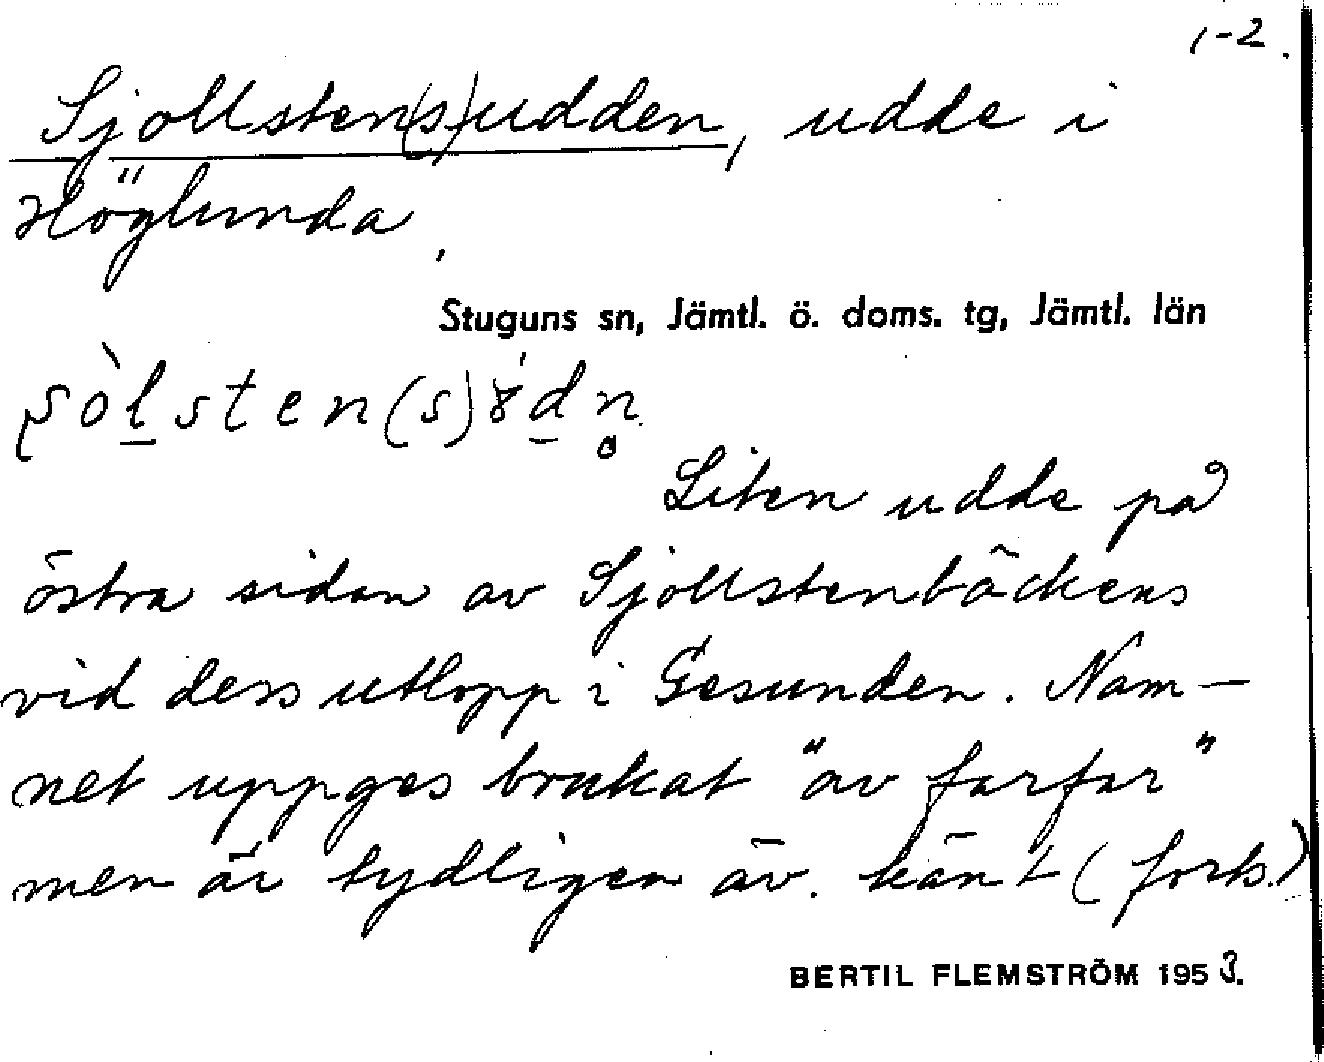 1-2.
Sjollsten(s)udden, udde i
Höglunda,
Stuguns sn, Jämtl. ö. doms. tg, Jämtl. län
Liten udde på
östra sidan av Sjollstenbäckens
vid dess utlopp i Gesunden. Nam-
net uppges brukat "av farfar"
men är tydligen äv. känt (forts.)
BERTIL FLEMSTRÖM 1953.